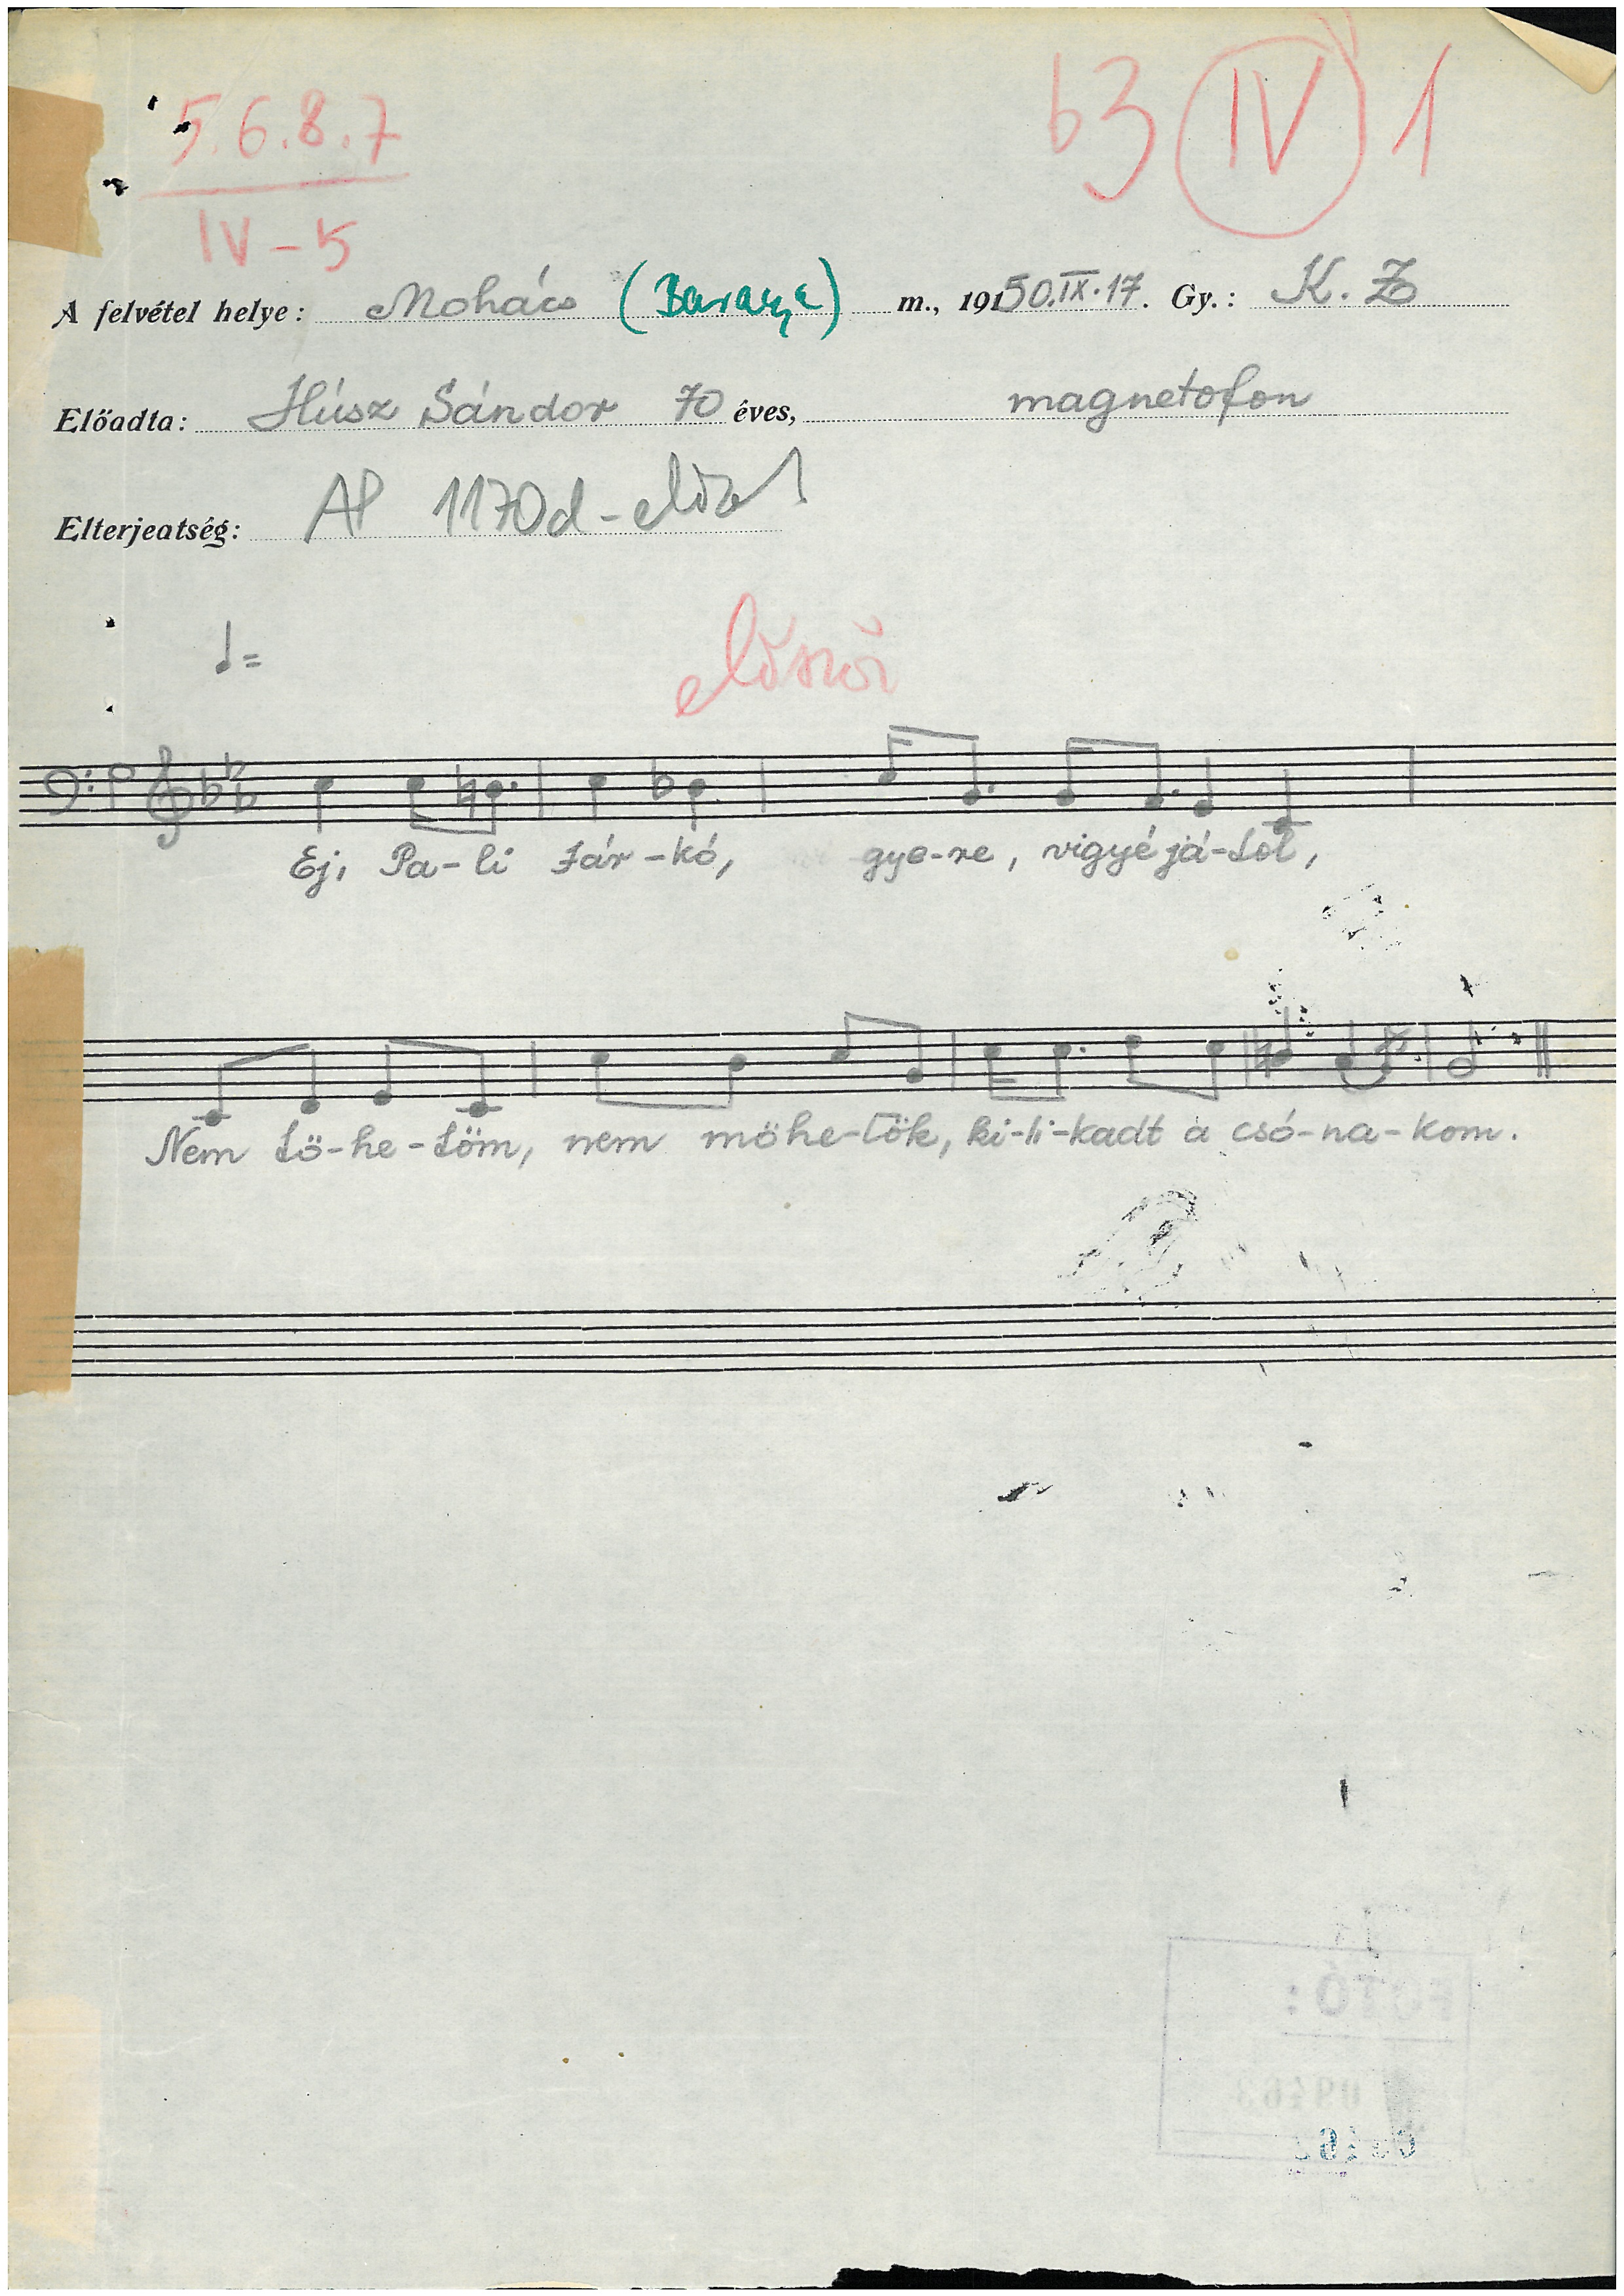 5.6.8.7
IV-5
b3 IV 1
A felvétel helye: Mohács (Baranya) m., 19150.IX.17. Gy.: K. Z
Előadta: Húsz Sándor 70 éves, magnetofon
Elterjedtség: AP 1170d-eleje
először
Ej, Pa-li Jár-kó, gye-re, vigyé já-tol,
Nem tö-he-töm, nem möhe-tök, ki-li-kadt a csó-na-kom.
FOTÓ:
09463